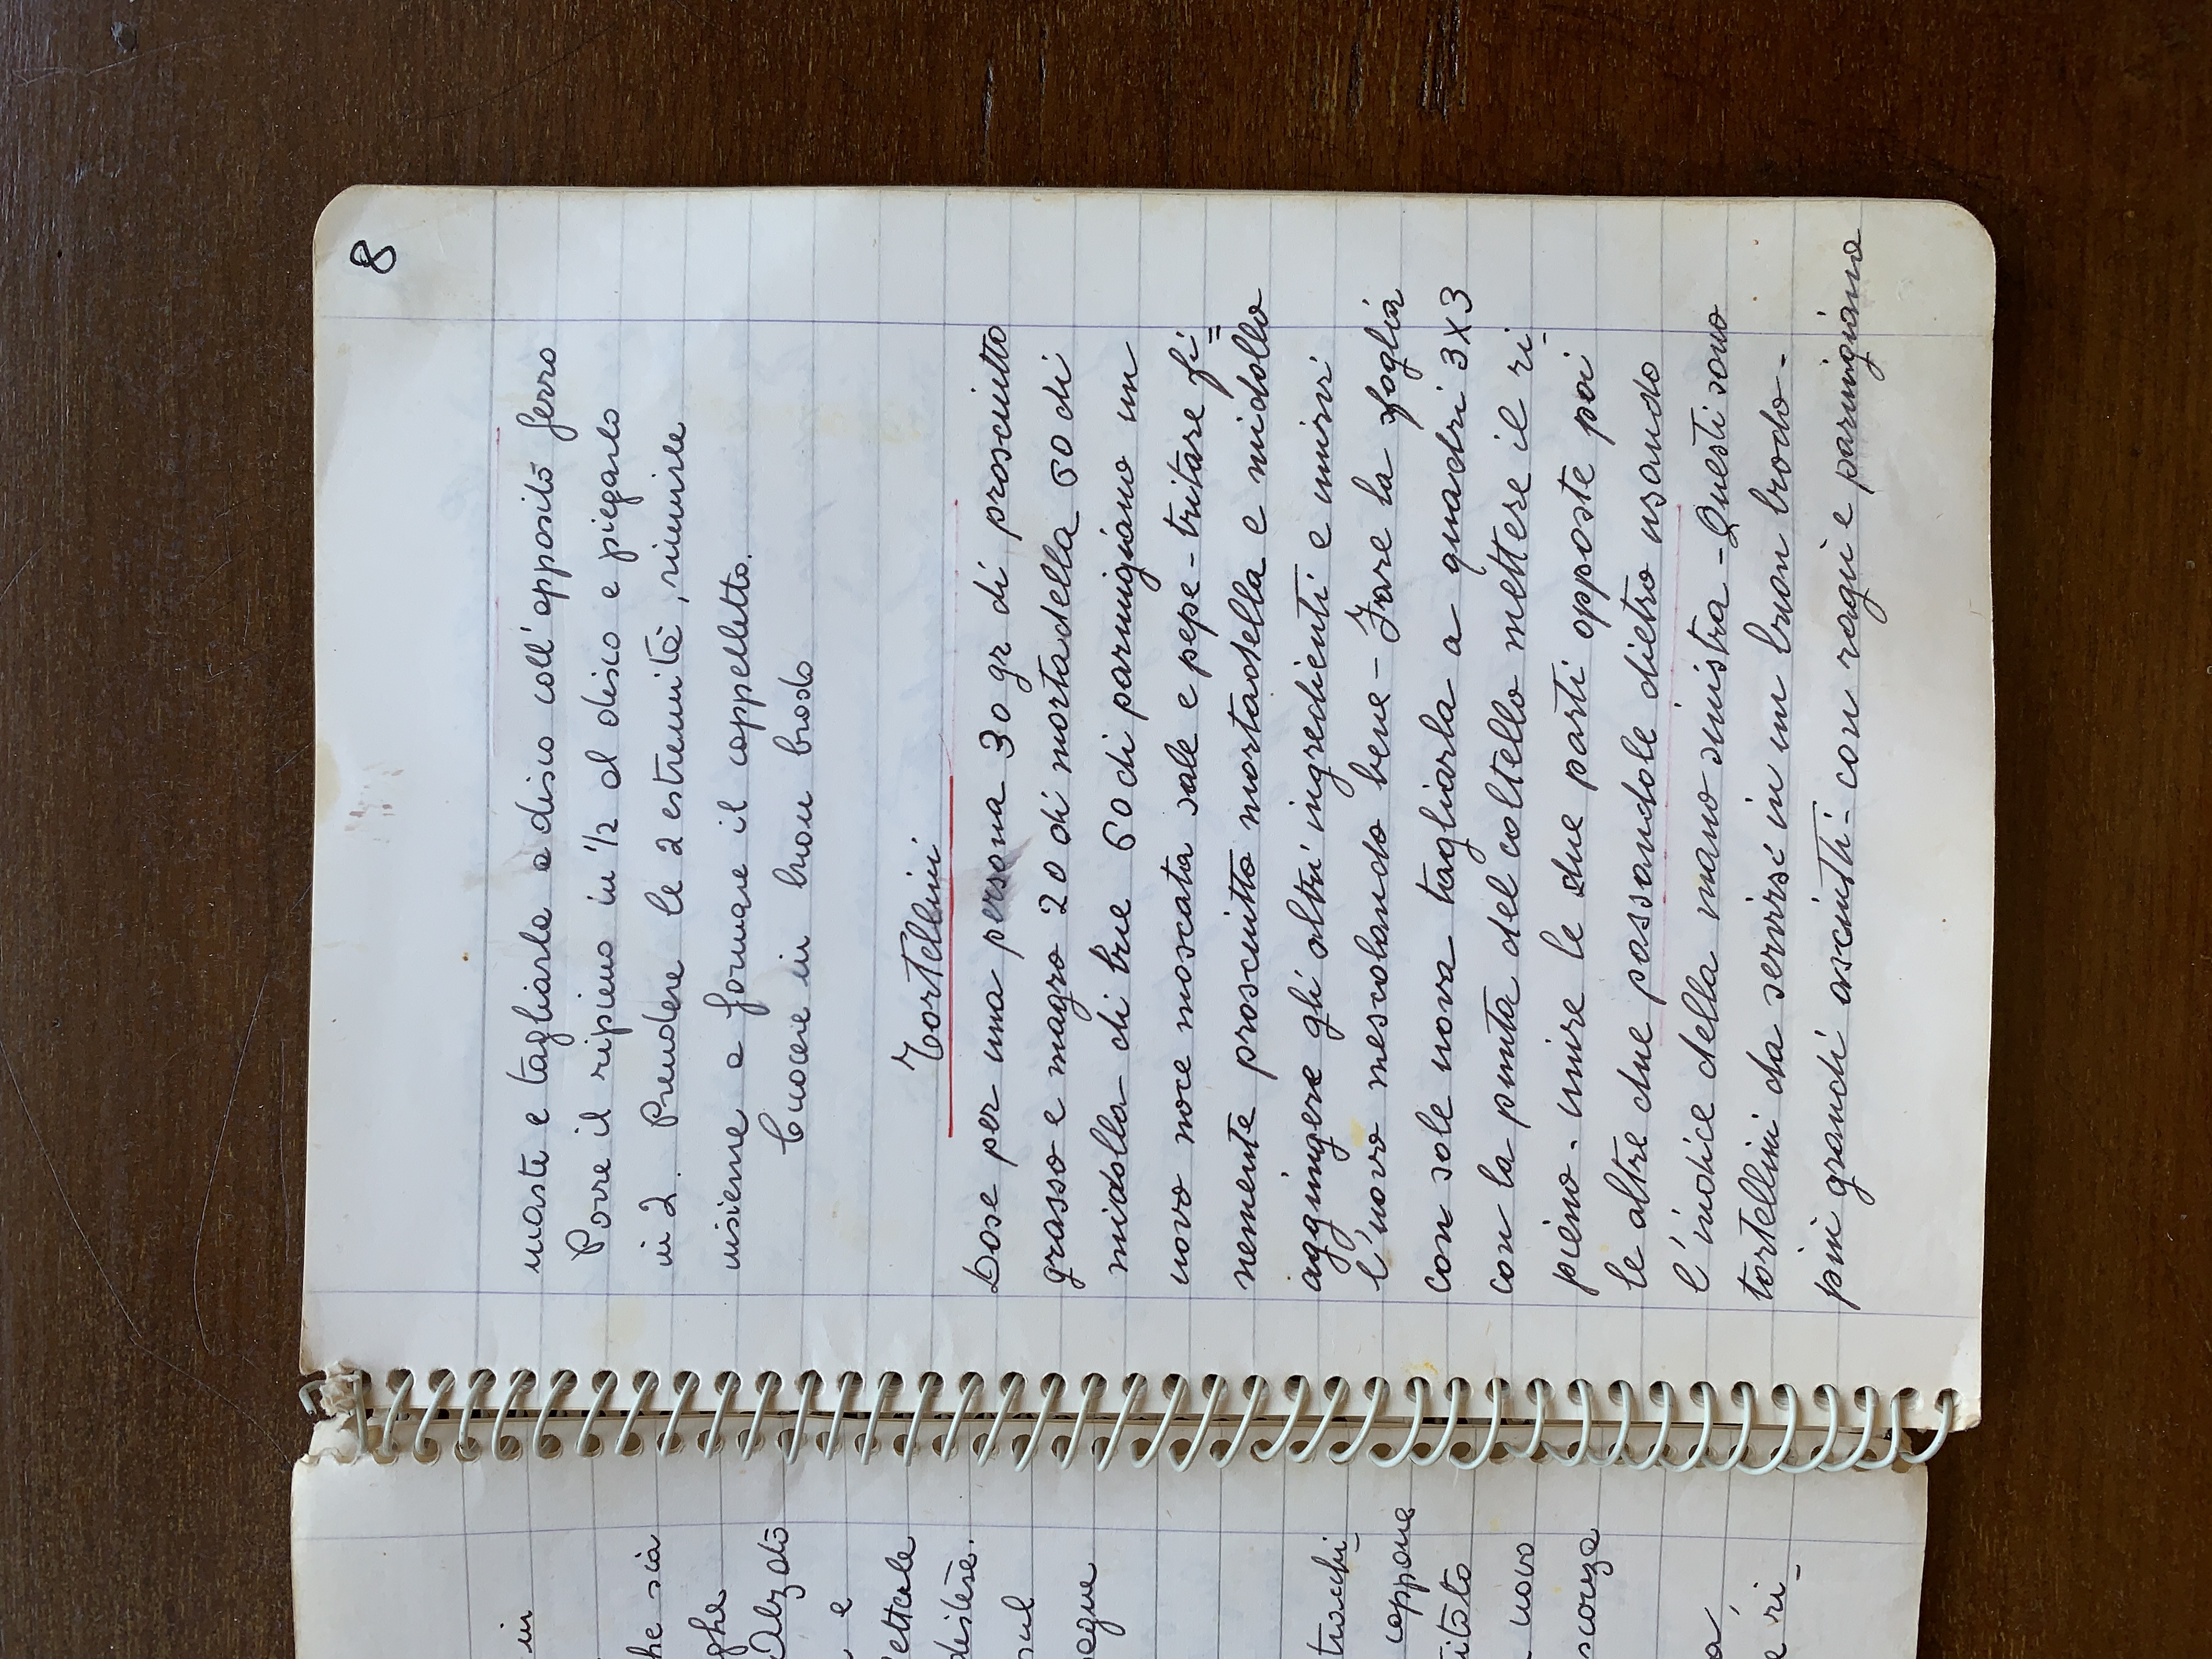 in
he sia
ghe
Alzato
e
lettale
distese.
sul
segue
tracchi
cappone
titolo
uovo
scorza
a,
e ri
8
maste e tagliarla a disco coll'apposito ferro
Porre il ripieno in 1/2 al disco e piegarlo
in 2. Prendere le 2 estremità, riunirle
insieme a formare il cappelletto.
Cuocere in buon brodo
Tortellini
Dose per una persona 30 gr di prosciutto
grasso e magro 20 di mortadella 60 di
midolla di bue 60 di parmigiano un
uovo noce moscata sale e pepe - tritare fi=
nemente prosciutto mortadella e midollo
aggiungere gli altri ingredienti e unirvi
l'uovo mescolando bene - Fare la sfoglia
con sole uova tagliarla a quadri 3x3
con la punta del coltello mettere il ri-
pieno - unire le due parti opposte poi
le altre due passandole dietro usando
l'indice della mano sinistra - Questi sono
tortellini da servirsi in un buon brodo -
più grandi asciutti - con ragù e parmigiano